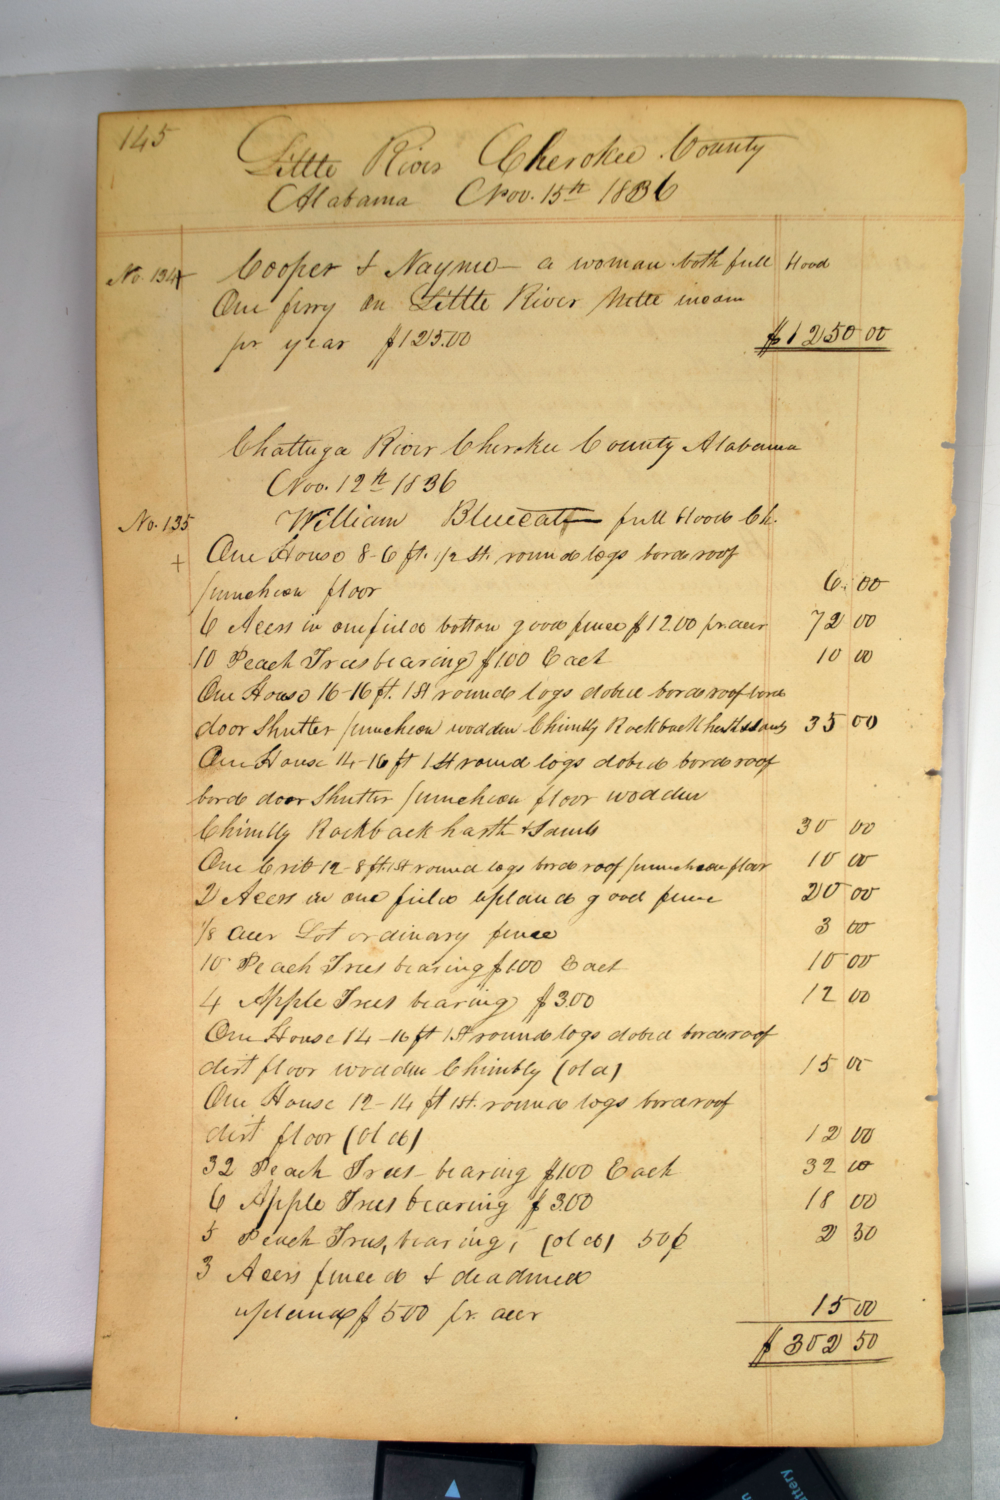 145
Little River Cherokee County
Alabama Nov. 15th 1836
No. 134 Cooper & Nayme - a woman both full blood
One ferry on Little River nette incom
pr year $125.00 $1250 00
Chattuga River Cherokee County Alabama
Nov. 12th 1836
No. 135 William Bluecatt full blood Ch.
+ One House 8-6 ft. 1/2 St. round logs bord roof
puncheon floor 6. 00
6 Acers in one field bottom good fence $12.00 pr. acer 72 00
10 Peach Trees bearing $1.00 Each 10 00
One House 16-16 ft. 1 St round logs dobed bord roof bord
door Shutter puncheon wodden Chimbly Rockback harth & Jambs 35 00
One House 14-16 ft 1 St round logs dobed bord roof
bord door Shutter puncheon floor wodden
Chimbly Rockback harth & Jambs 30 00
One Crib 12-8 ft. 1 St round logs bord roof puncheon floor 10 00
2 Acers in one field upland good fence 20 00
1/8 acer Lot ordinary fence 3 00
10 Peach Trees bearing $1.00 Each 10 00
4 Apple Trees bearing $3.00 12 00
One House 14-16 ft 1 St round logs dobed bord roof
dirt floor wodden Chimbly (old) 15 00
One House 12-14 ft 1 St. round logs bord roof
dirt floor (old) 12 00
32 Peach Trees bearing $1.00 Each 32 00
6 Apple Trees bearing $3.00 18 00
5 Peach Trees, bearing, (old) 50¢ 2 50
3 Acers fenced & deadned
upland $5.00 pr. acer 15 00
$302 50
ttery